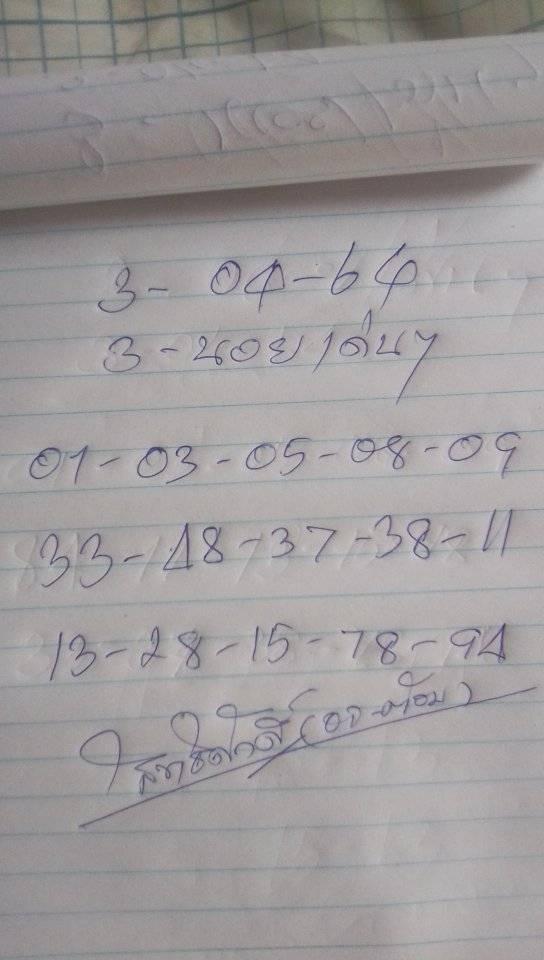 3- 04-64
3-นอย/เด่นๆ
01-03-05-08-09
33-48-37-38-11
13-28-15-78-94